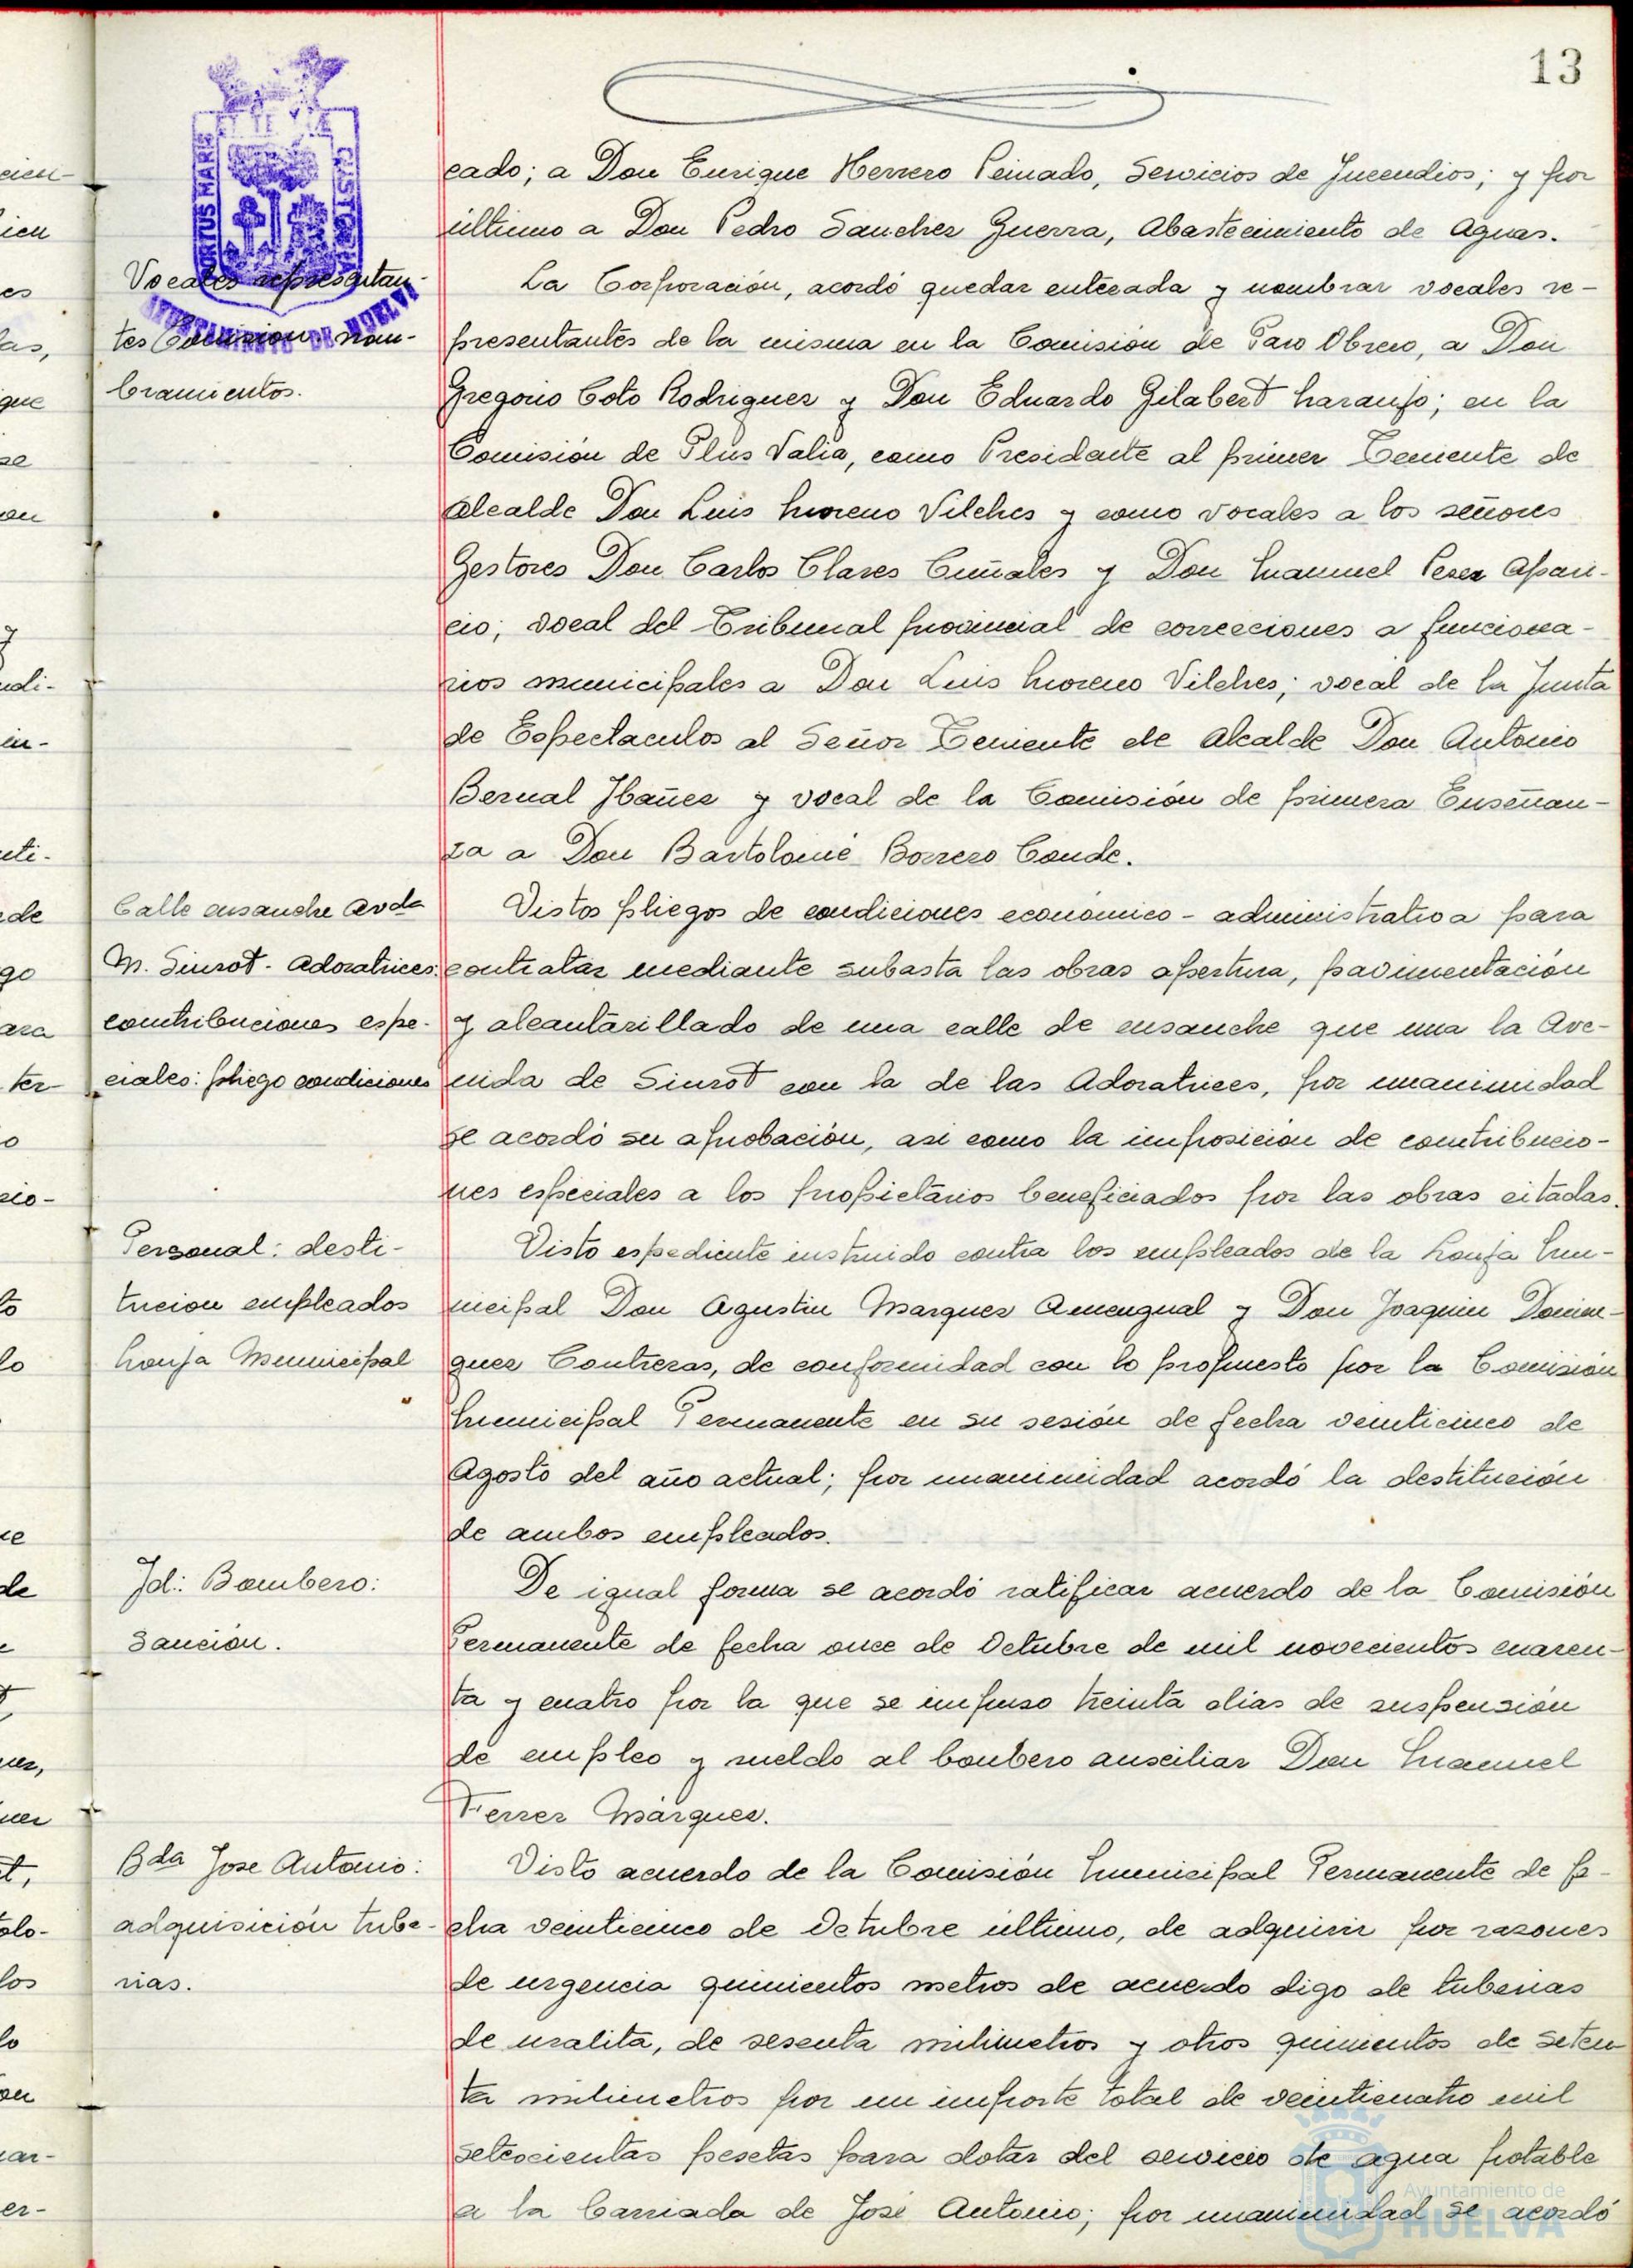 13
cado; a Don Enrique Herrero Peinado, Servicios de Incendios; y por
último a Don Pedro Sanchez Guerra, Abastecimiento de Aguas.
Vocales representan-
tes Comision: nom-
bramientos.
La Corporación, acordó quedar enterada y nombrar vocales re-
presentantes de la misma en la Comisión de Paro Obrero, a Don
Gregorio Coto Rodriguez y Don Eduardo Gilabert Naranjo; en la
Comisión de Plus Valia, como Presidente al primer Teniente de
Alcalde Don Luis Moreno Vilches y como vocales a los señores
Gestores Don Carlos Clares Cuñales y Don Manuel Perez Apari-
cio; vocal del Tribunal provincial de correcciones a funciona-
rios municipales a Don Luis Moreno Vilches; vocal de la Junta
de Espectaculos al Señor Teniente de Alcalde Don Antonio
Bernal Ibañez y vocal de la Comisión de primera Enseñan-
za a Don Bartolomé Borrero Conde.
Calle ensanche Avda
M. Siurot - Adoratrices:
contribuciones espe-
ciales: pliego condiciones
Vistos pliegos de condiciones económico-administrativa para
contratar mediante subasta las obras apertura, pavimentación
y alcantarillado de una calle de ensanche que una la Ave-
nida de Siurot con la de las Adoratrices, por unanimidad
se acordó su aprobación, asi como la imposición de contribucio-
nes especiales a los propietarios beneficiados por las obras citadas.
Personal: desti-
tucion empleados
Lonja Municipal
Visto espediente instruido contra los empleados de la Lonja Mu-
nicipal Don Agustin Marquez Amengual y Don Joaquin Domin-
guez Contreras, de conformidad con lo propuesto por la Comisión
Municipal Permanente en su sesión de fecha veinticinco de
Agosto del año actual; por unanimidad acordó la destitución
de ambos empleados.
Id.: Bombero:
Sanción.
De igual forma se acordó ratificar acuerdo de la Comisión
Permanente de fecha once de Octubre de mil novecientos cuaren-
ta y cuatro por la que se impuso treinta dias de suspensión
de empleo y sueldo al bombero auxciliar Don Manuel
Ferrer Márquez.
Bda Jose Antonio:
adquisición tube-
rias.
Visto acuerdo de la Comisión Municipal Permanente de fe-
cha veinticinco de Octubre último, de adquirir por razones
de urgencia quinientos metros de acuerdo digo de tuberias
de uralita, de sesenta milimetros y otros quinientos de seten-
ta milimetros por un importe total de veinticuatro mil
setescientas pesetas para dotar del servicio de agua potable
a la barriada de José Antonio; por unanimidad se acordó
Ayuntamiento de
HUELVA